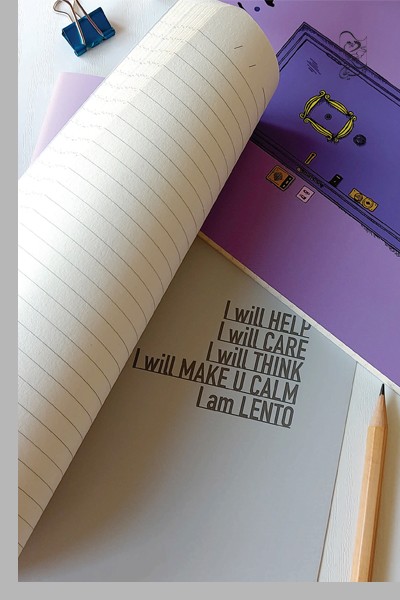 I will HELP
I will CARE
I will THINK
I will MAKE U CALM
I am LENTO